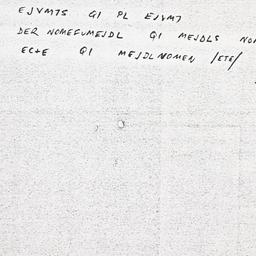 EJVM7S GI PL EJVM7
DER NOMEFUMEJDL GI MEJDLS NOM
EC+E GI MEJJLNOMEN /ETE/